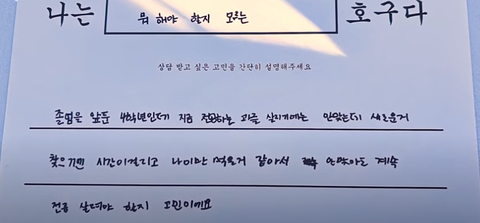 나는 뭐 해야 할지 모르는 호구다
상담 받고 싶은 고민을 간단히 설명해주세요
졸업을 앞둔 4학년인데 지금 전공하는 과를 살리기에는 안맞는데 새로운거
찾으기엔 시간이걸리고 나이만 먹은거 같아서 안맞아도 계속
전공 살려야 할지 고민이에요